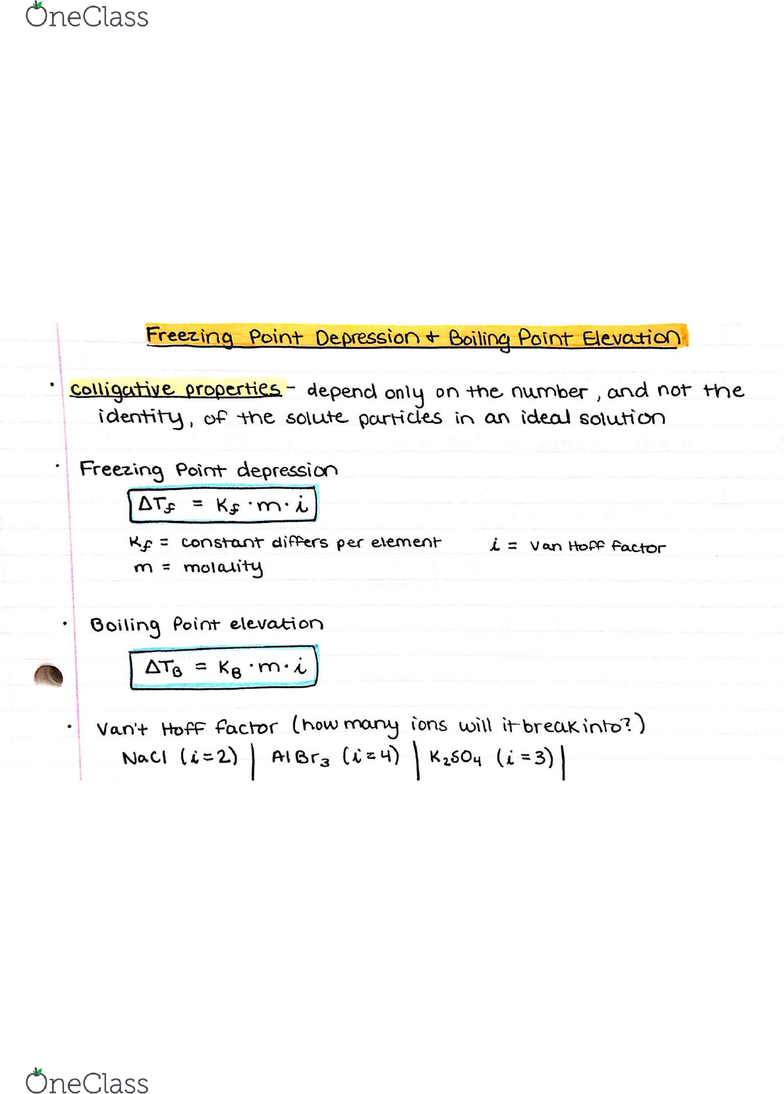 OneClass
Freezing Point Depression + Boiling Point Elevation
• colligative properties - depend only on the number, and not the
identity, of the solute particles in an ideal solution
• Freezing Point depression
ΔTf = Kf · m · i
Kf = constant differs per element    i = Van Hoff factor
m = molality
• Boiling Point elevation
ΔTB = KB · m · i
• Van't Hoff factor (how many ions will it break into?)
NaCl (i=2) | AlBr₃ (i=4) | K₂SO₄ (i=3) |
OneClass